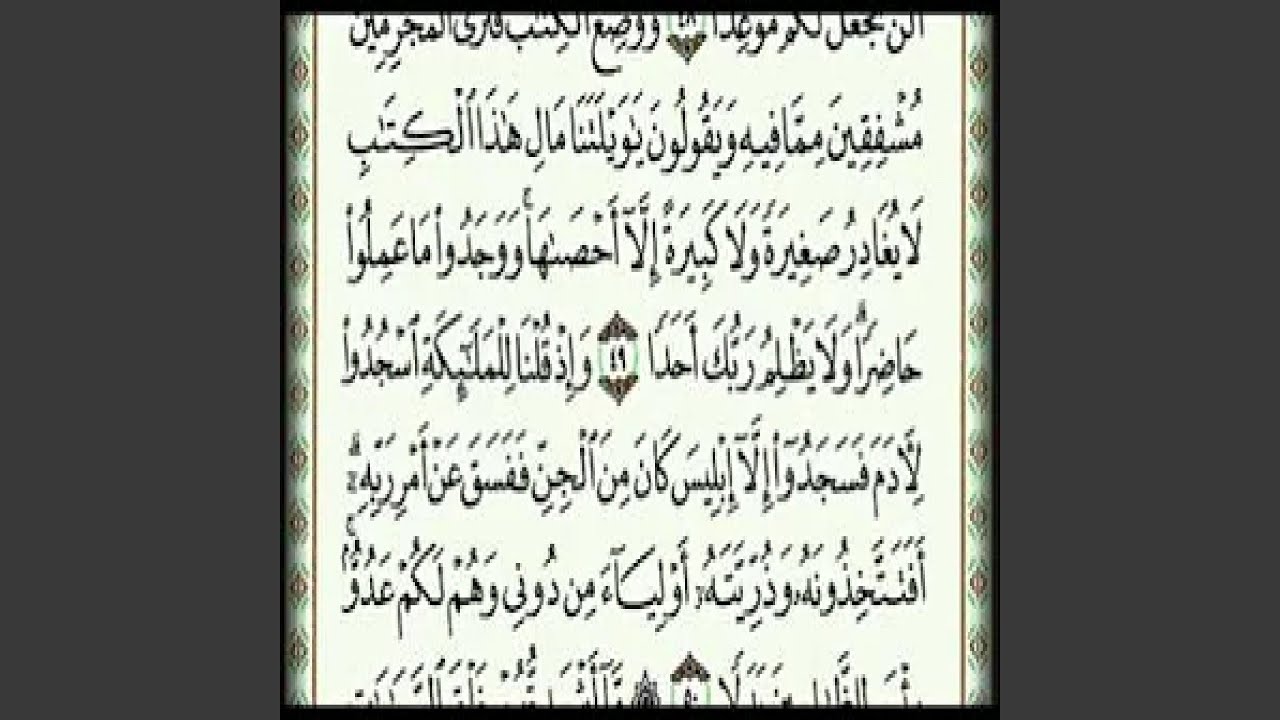 ألن نجعل لكم موعدا ٤٨ ووضع الكتب فترى المجرمين
مُشْفِقِينَ مِمَّا فِيهِ وَيَقُولُونَ يَٰوَيْلَتَنَا مَالِ هَٰذَا ٱلْكِتَٰبِ
لَا يُغَادِرُ صَغِيرَةً وَلَا كَبِيرَةً إِلَّآ أَحْصَىٰهَا ۚ وَوَجَدُوا۟ مَا عَمِلُوا۟
حَاضِرًا ۗ وَلَا يَظْلِمُ رَبُّكَ أَحَدًا ٤٩ وَإِذْ قُلْنَا لِلْمَلَٰٓئِكَةِ ٱسْجُدُوا۟
لِـَٔادَمَ فَسَجَدُوٓا۟ إِلَّآ إِبْلِيسَ كَانَ مِنَ ٱلْجِنِّ فَفَسَقَ عَنْ أَمْرِ رَبِّهِۦٓ ۗ
أَفَتَتَّخِذُونَهُۥ وَذُرِّيَّتَهُۥٓ أَوْلِيَآءَ مِن دُونِى وَهُمْ لَكُمْ عَدُوٌّۢ ۚ